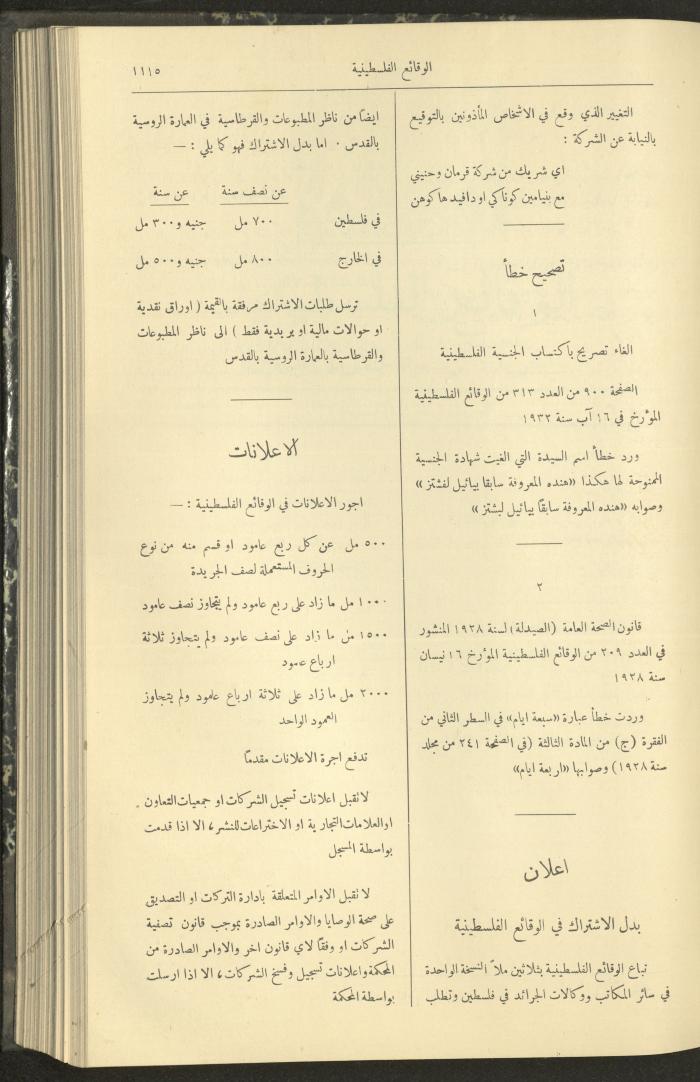 الوقائع الفلسطينية
١١١٥
التغيير الذي وقع في الاشخاص المأذونين بالتوقيع
بالنيابة عن الشركة :
اي شريك من شركة قرمان وحنيني
مع بنيامين كوناكي او دافيد هاكوهن
تصحيح خطأ
١
الغاء تصريح بأكتساب الجنسية الفلسطينية
الصفحة ٩٠٠ من العدد ٣١٣ من الوقائع الفلسطينية
المؤرخ في ١٦ آب سنة ١٩٣٢
ورد خطأ اسم السيدة التي الغيت شهادة الجنسية
الممنوحة لها هكذا «هنده المعروفة سابقا بيائيل لفشتز»
وصوابه «هنده المعروفة سابقاً بيائيل لبشتز»
٢
قانون الصحة العامة (الصيدلة) لسنة ١٩٢٨ المنشور
في العدد ٢٠٩ من الوقائع الفلسطينية المؤرخ ١٦ نيسان
سنة ١٩٢٨
وردت خطأ عبارة «سبعة ايام» في السطر الثاني من
الفقرة (ج) من المادة الثالثة (في الصفحة ٢٤١ من مجلد
سنة ١٩٢٨) وصوابها «اربعة ايام»
اعلان
بدل الاشتراك في الوقائع الفلسطينية
تباع الوقائع الفلسطينية بثلاثين ملاً النسخة الواحدة
في سائر المكاتب ووكالات الجرائد في فلسطين وتطلب
ايضاً من ناظر المطبوعات والقرطاسية في العمارة الروسية
بالقدس ٠ اما بدل الاشتراك فهو كما يلي : —
عن نصف سنة عن سنة
في فلسطين ٧٠٠ مل جنيه و٣٠٠ مل
في الخارج ٨٠٠ مل جنيه و٥٠٠ مل
ترسل طلبات الاشتراك مرفقة بالقيمة ( اوراق نقدية
او حوالات مالية او بريدية فقط ) الى ناظر المطبوعات
والقرطاسية بالعمارة الروسية بالقدس
الاعلانات
اجور الاعلانات في الوقائع الفلسطينية : —
٥٠٠ مل عن كل ربع عامود او قسم منه من نوع
الحروف المستعملة لصف الجريدة
١٠٠٠ مل ما زاد على ربع عامود ولم يتجاوز نصف عامود
١٥٠٠ مل ما زاد على نصف عامود ولم يتجاوز ثلاثة
ارباع عامود
٢٠٠٠ مل ما زاد على ثلاثة ارباع عامود ولم يتجاوز
العمود الواحد
تدفع اجرة الاعلانات مقدماً
لا تقبل اعلانات تسجيل الشركات او جمعيات التعاون
او العلامات التجارية او الاختراعات للنشر، الا اذا قدمت
بواسطة المسجل
لا تقبل الاوامر المتعلقة بادارة التركات او التصديق
على صحة الوصايا والاوامر الصادرة بموجب قانون تصفية
الشركات او وفقاً لاي قانون اخر والاوامر الصادرة من
المحكمة واعلانات تسجيل وفسخ الشركات، الا اذا ارسلت
بواسطة المحكمة